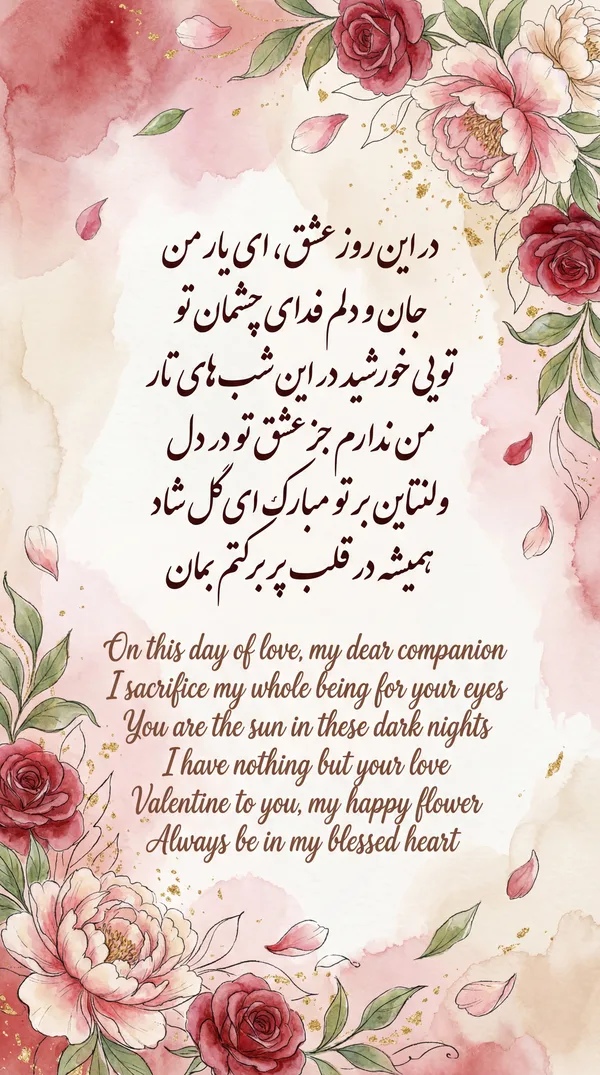 در این روز عشق، ای یار من
جان و دلم فدای چشمان تو
تویی خورشید در این شب‌های تار
من ندارم جز عشق تو در دل
ولنتاین بر تو مبارک ای گل شاد
همیشه در قلب پر برکتم بمان
On this day of love, my dear companion
I sacrifice my whole being for your eyes
You are the sun in these dark nights
I have nothing but your love
Valentine to you, my happy flower
Always be in my blessed heart